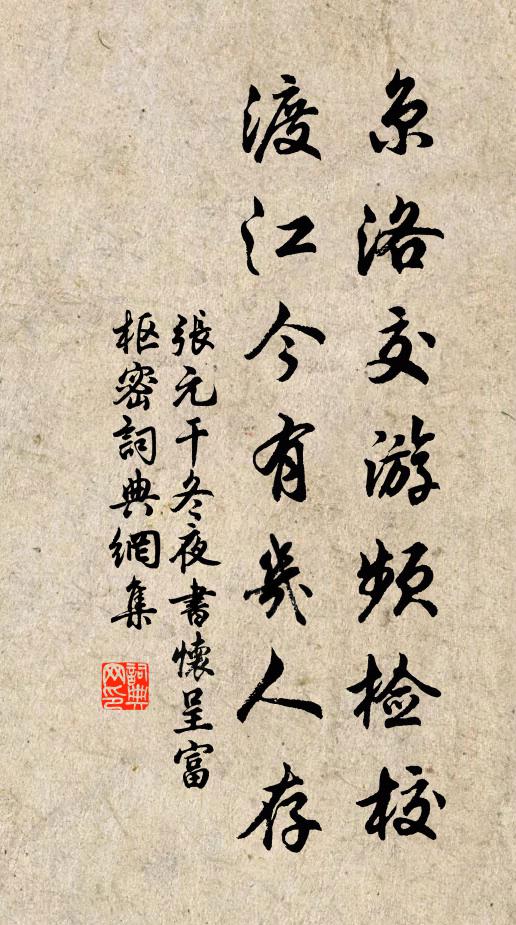 京洛交游频检校
渡江今有幾人存
張元干冬夜書懷呈富
枢密詞典網集
詞典
网印